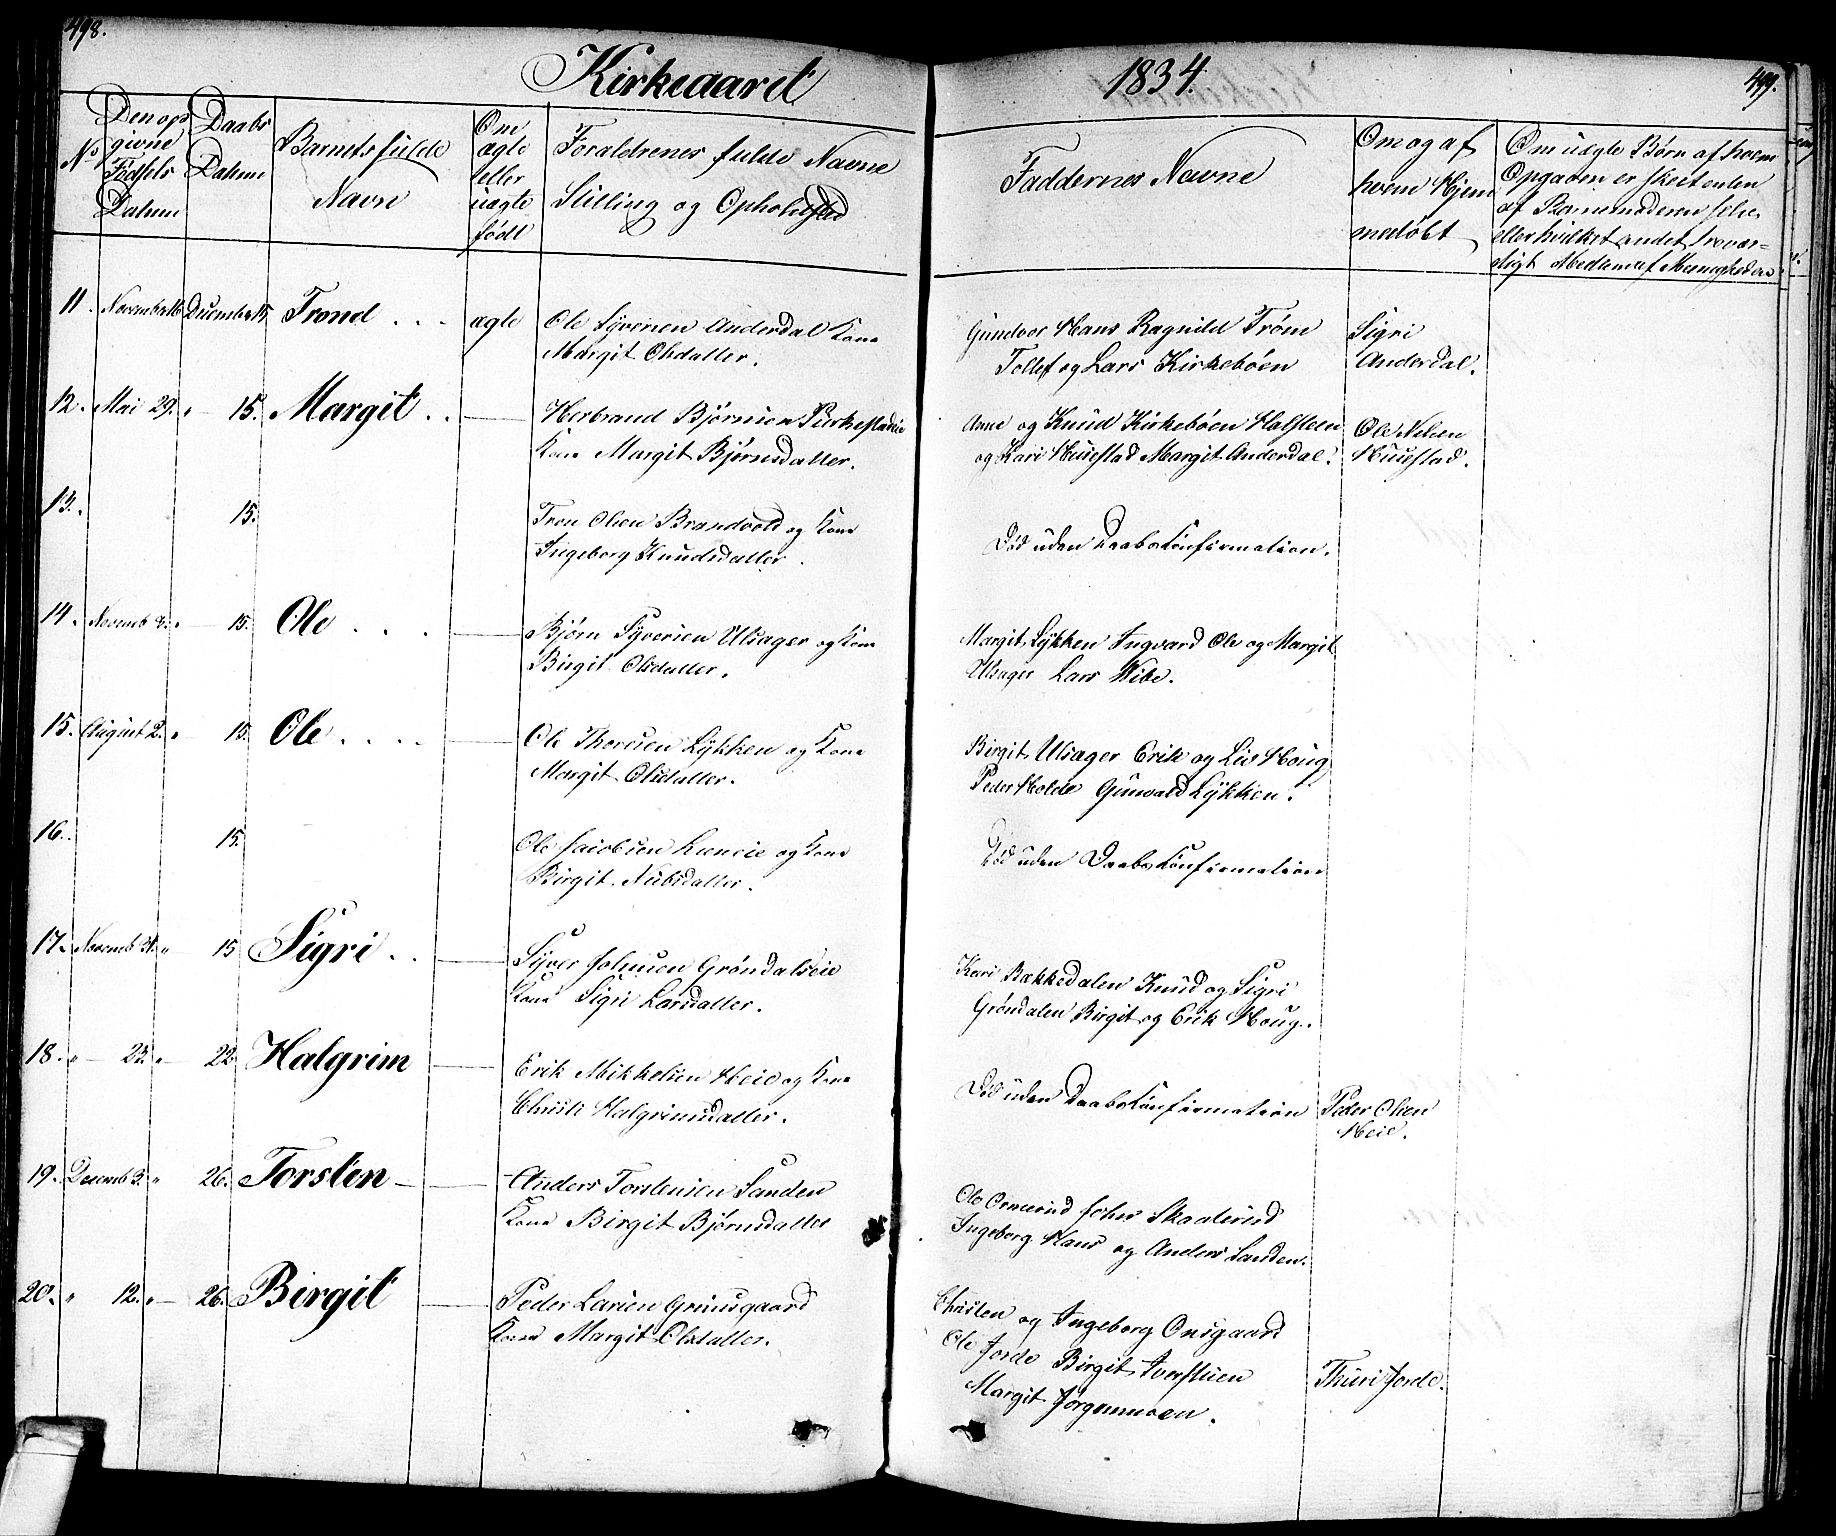 498.
Kirkeaaret
1834.
499.
No
Den op
givne
Fødsels
Datum
Daabs
Datum
Barnets fulde
Navn
Om
ægte
eller
uægte
født
Foraldrenes fulde Navne
Stilling og Opholdsted
Faddernes Navne
Om og af
hvem Hjem
medøbt
Om uægte Børn af hvem
Opgaven er skeet enten
af Barnemoderen selv
eller hvilket andet trovær=
digt Medlem af Menigheden
11. Novemb 16 Decemb 15. Trond . . . ægte Ole Syversen Anderdal Kone
Margit Olsdatter.
Gundvor Hans Ragnild Trøm
Tollef og Lars Kirkebøen
Sigri
Anderdal.
12. Mai 29. " — 15. Margit . . — Herbrand Bjørnsen
Kone Margit Bjørnsdatter.
Anne og Knud Kirkebøen Halsteen
og Kari Huusstad Margit Anderdal.
Ole Nilsen
Huusstad.
13. 15. Tron Olsen Brandvold og Kone
Ingeborg Knudsdatter.
Død uden Daabs Konfirmation.
14. Novemb 2. " — 15. Ole . . . — Bjørn Syversen Ulsager og Kone
Birgit Olsdatter.
Margit Lykken Ingvard Ole og Margit
Ulsager Lars Wibe.
15. August 2. " — 15. Ole . . . . — Ole Thoresen Lykken og Kone
Margit Olsdatter.
Birgit Ulsager Erik og Liv Houg
Peder Holde Gunvald Lykken.
16. 15. Ole Jacobsen og Kone
Birgit Nubsdatter.
Død uden Daabs Konfirmation
17. Novemb " 15 Sigri . . — Syver Johnsen Grøndalseie
Kone Sigri Larsdatter.
Kari Bakkedalen Knud og Sigri
Grøndalen Birgit og Erik Houg.
18. " — 23. " — 22. Halgrim — Erik Mikkelsen Heie og Kone
Christi Halgrimsdatter.
Død uden Daabs Konfirmation
Peder Olsen
Heie.
19. Decemb 3. " 26. Torsten — Anders Torstensen Sanden
Kone Birgit Bjørnsdatter
Ole Ormerud John Skaalerud
Ingeborg Hans og Anders Sanden.
20. " 12. " — 26. Birgit — Peder Larsen Grimsgaard
Kone Margit Olsdatter.
Christen og Ingeborg Onsgaard
Ole Jorde Birgit Iverstuen
Margit Jørgenmoen.
Thuri Jorde.